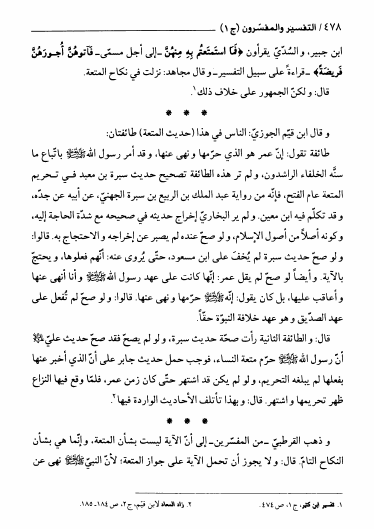 ٤٧٨ / التفسير والمفسّرون (ج١)
ابن جبير، والسُدّيّ يقرأون ﴿فَمَا اسْتَمْتَعْتُم بِهِ مِنْهُنَّ﴾ –إلى أجل مسمّى– ﴿فَآتُوهُنَّ أُجُورَهُنَّ
فَرِيضَةً﴾ –قراءةً على سبيل التفسير– و قال مجاهد: نزلت في نكاح المتعة.
قال: و لكنّ الجمهور على خلاف ذلك١.
* * *
و قال ابن قيّم الجوزيّ: الناس في هذا (حديث المتعة) طائفتان:
طائفة تقول: إنّ عمر هو الذي حرّمها و نهى عنها، و قد أمر رسول الله ﷺ باتّباع ما
سنّه الخلفاء الراشدون، و لم تر هذه الطائفة تصحيح حديث سبرة بن معبد في تحريم
المتعة عام الفتح، فإنّه من رواية عبد الملك بن الربيع بن سبرة الجهنيّ، عن أبيه عن جدّه،
و قد تكلّم فيه ابن معين. و لم ير البخاريّ إخراج حديثه في صحيحه مع شدّة الحاجة إليه،
و كونه أصلاً من أصول الإسلام، و لو صحّ عنده لم يصبر عن إخراجه و الاحتجاج به. قالوا:
و لو صحّ حديث سبرة لم يُخفَ على ابن مسعود، حتّى يُروى عنه: أنّهم فعلوها، و يحتجّ
بالآية. و أيضاً لو صحّ لم يقل عمر: إنّها كانت على عهد رسول الله ﷺ و أنا أنهى عنها
و أعاقب عليها، بل كان يقول: إنّه ﷺ حرّمها و نهى عنها. قالوا: و لو صحّ لم تُفعل على
عهد الصدّيق و هو عهد خلافة النبوّة حقّاً.
قال: و الطائفة الثانية رأت صحّة حديث سبرة، و لو لم يصحّ فقد صحّ حديث عليّ
أنّ رسول الله ﷺ حرّم متعة النساء، فوجب حمل حديث جابر على أنّ الذي أخبر عنها
بفعلها لم يبلغه التحريم، و لو لم يكن قد اشتهر حتّى كان زمن عمر، فلمّا وقع فيها النزاع
ظهر تحريمها و اشتهر. قال: و بهذا تأتلف الأحاديث الواردة فيها٢.
* * *
و ذهب القرطبيّ –من المفسّرين– إلى أنّ الآية ليست بشأن المتعة، و إنّما هي بشأن
النكاح التامّ. قال: و لا يجوز أن تحمل الآية على جواز المتعة؛ لأنّ النبيّ ﷺ نهى عن
١. تفسير ابن كثير، ج١، ص ٤٧٤.
٢. زاد المعاد لابن قيّم، ج٢، ص ١٨٤–١٨٥.